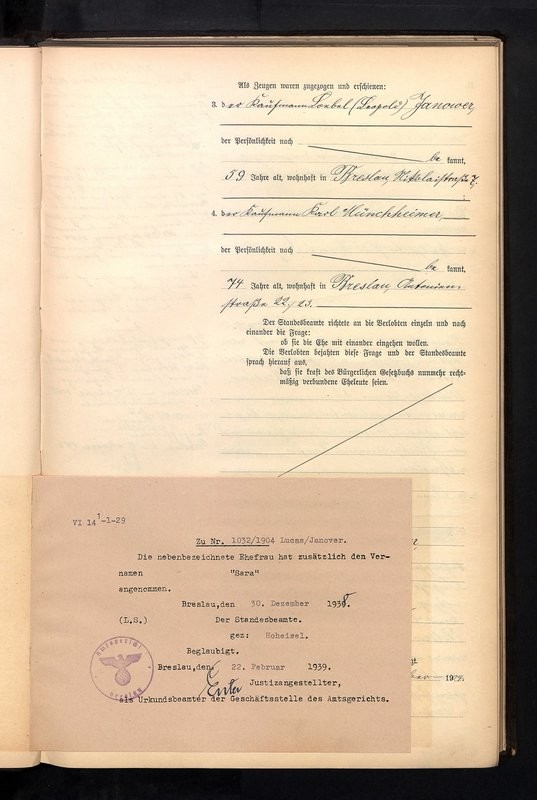 Als Zeugen waren zugezogen und erschienen:
3. der Kaufmann Loebel (Leopold) Janower,
der Persönlichkeit nach
be kannt,
59 Jahre alt, wohnhaft in Breslau, Nikolaistraße 7.
4. der Kaufmann Karl Münchheimer,
der Persönlichkeit nach
be kannt,
74 Jahre alt, wohnhaft in Breslau, Antonien-
straße 22/23.
Der Standesbeamte richtete an die Verlobten einzeln und nach
einander die Frage:
ob sie die Ehe mit einander eingehen wollen.
Die Verlobten bejahten diese Frage und der Standesbeamte
sprach hierauf aus,
daß sie kraft des Bürgerlichen Gesetzbuchs nunmehr recht-
mäßig verbundene Eheleute seien.
VI 14 1-1-29
Zu Nr. 1032/1904 Lucas/Janover.
Die nebenbezeichnete Ehefrau hat zusätzlich den Vor-
namen "Sara"
angenommen.
Breslau,den 30. Dezember 1938.
(L.S.) Der Standesbeamte.
gez: Hoheisel.
Beglaubigt.
Breslau,den 22. Februar 1939.
Justizangestellter,
als Urkundsbeamter der Geschäftsstelle des Amtsgerichts.
Amtsgericht
Breslau